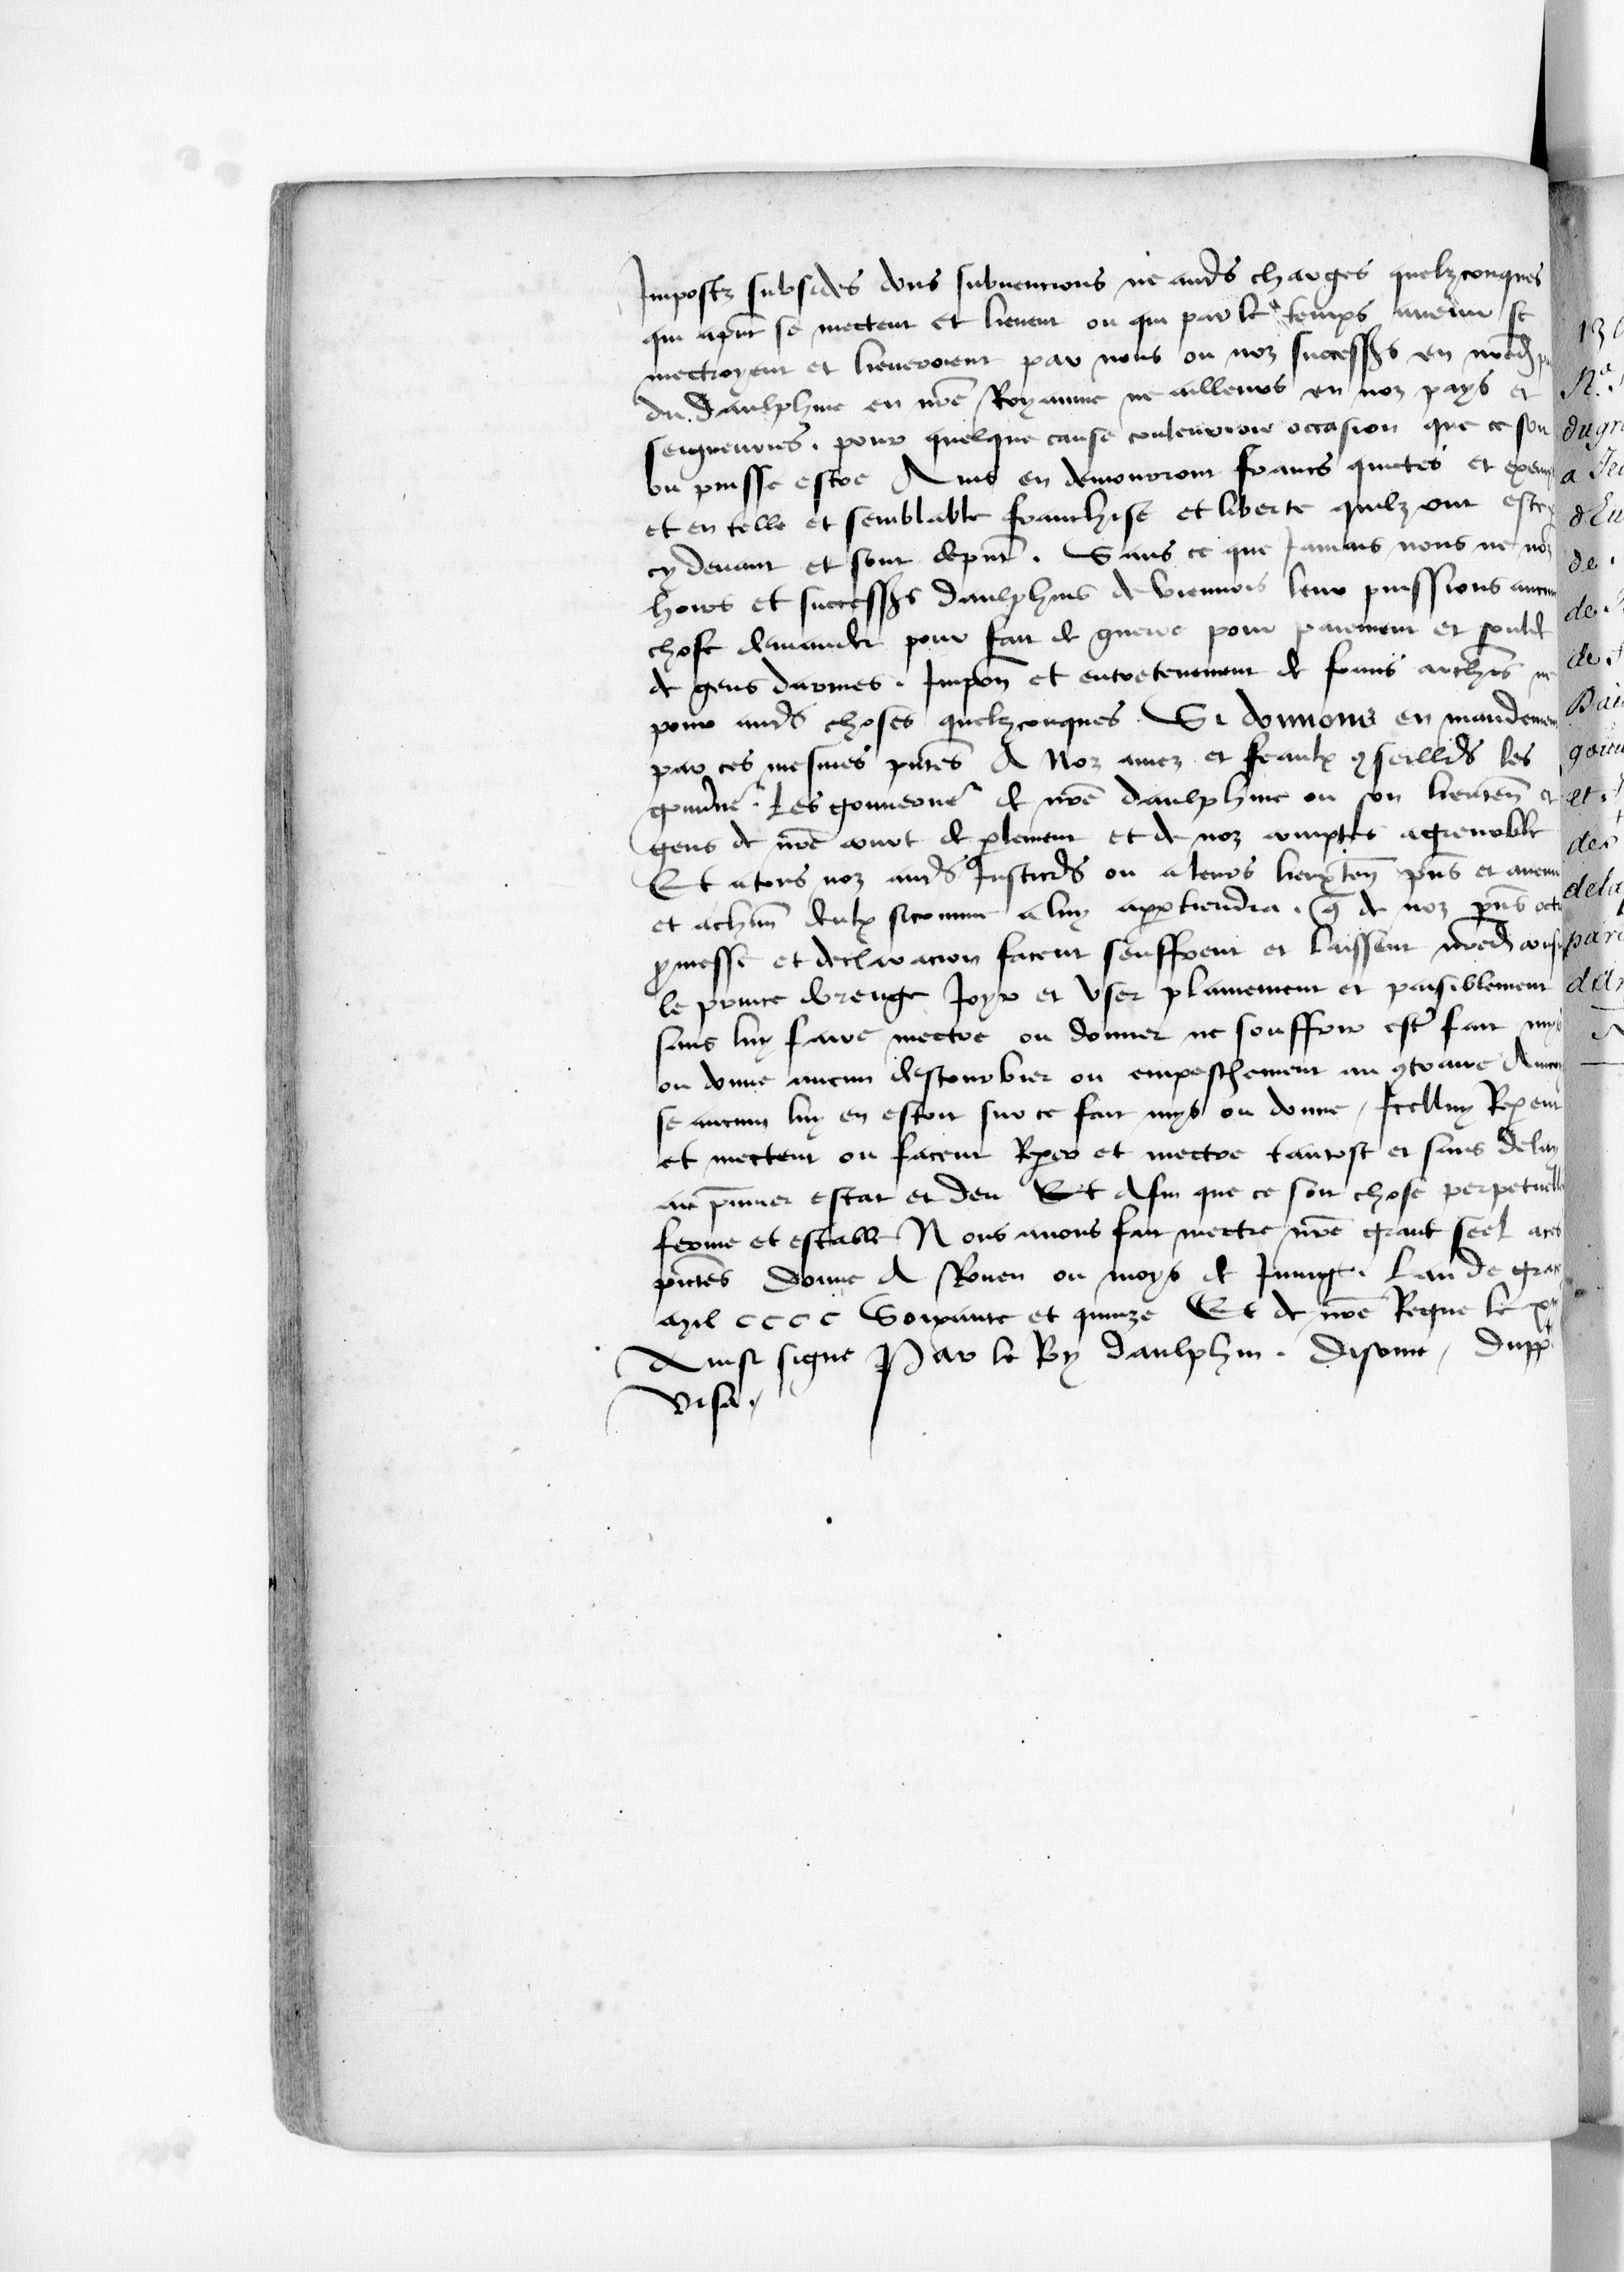 Impostz subsides dons subvencions ne aud͛s charges quelzconques
qui apn̄t se mectent et lievent ou qui par le temps avenir se
mectroyent et lieveroient par nous ou noz success͛s en nr̄ed
du daulphine en nr̄e Royaume ne ailleurs en noz pays et
seigneuries. pour quelque cause couleur ou occasion que ce soit
ou puisse estre Ains en demourront francs quictes et exemp
et en telle et semblable franchise et liberte quilz ont este
cy devant et sont de pn̄t. Sans ce que Jamais nous ne noz
hoirs et success͛s daulphins de viennois leur puissions aucune
chose demander pour fait de guerre pour paiement et soulde
de gens darmes. Imposn̄ et entretenement de francs archr̄s ne
pour aud͛s choses quelzconques. Si donnons en mandement
par ces mesmes pn̄tes A Noz amez et feaulx 9seill͛s les
gouv͛ne͛. Les gouverne͛ de nr̄e daulphine ou son lieuten̄ et
gens de nr̄e court de plement et de noz comptes a grenoble
Et a tous noz aud͛s Justic͛s ou a leurs lieuxten̄ pn̄s et avenir
et a chūn deulx si comme a luy appartiendra. q̄ de noz pn̄s
pmesse et declaracion facent seuffrent et laissent nr̄ed
le prince dorenge Joyr et User plainement et paisiblement
sans luy faire mectre ou donner ne souffrir est͛ fait mys
ou donne aucun destourbier ou empeschement au 9traire Aincois
se aucun luy en estoit sur ce fait mys ou donne, Icelluy Repent
et mectent ou facent Reper et mectre tantost et sans delay
au pmier estat et deu Et Afin que ce soit chose perpetuelle
ferme et estable Nous avons fait mectre nr̄e grant seel a ces
pn̄tes Donne A Rouen ou moys de Juing. Lan de grace
mil cccc Soixante et quinze Et de nr̄e Regne le
Ainsi signe Par le Roy daulphin. Disome,
Visa.